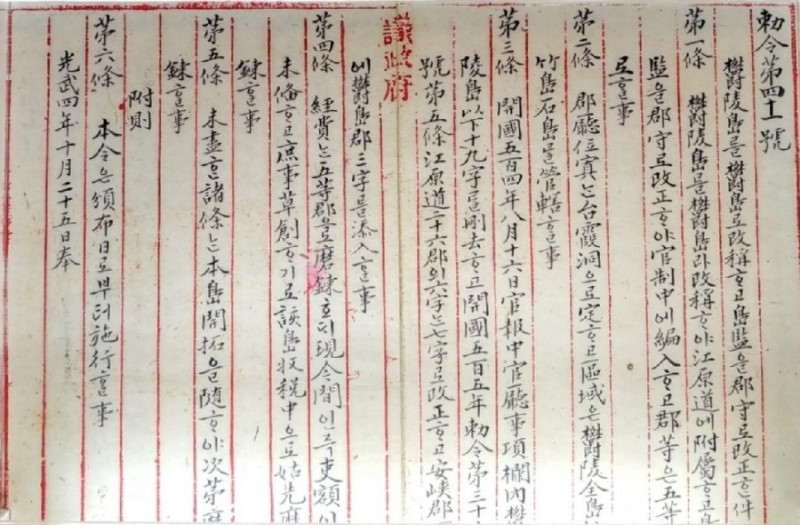 勅令第四十一號
欝陵島를欝島로改稱ᄒᆞ고島監을郡守로改正ᄒᆞᆫ件
第一條 欝陵島를欝島라改稱ᄒᆞ야江原道에附屬ᄒᆞ고島
監을郡守로改正ᄒᆞ야官制中에編入ᄒᆞ고郡等은五等
로ᄒᆞᆯ事
第二條 郡廳位寘는台霞洞으로定ᄒᆞ고區域은欝陵全島
竹島石島를管轄ᄒᆞᆯ事
第三條 開國五百四年八月十六日官報中官廳事項欄內欝
陵島以下十九字를刪去ᄒᆞ고開國五百五年勅令第三十
號第五條江原道二十六郡의六字는七字로改正ᄒᆞ고安峽郡
議政府
에欝島郡三字를添入ᄒᆞᆯ事
第四條 經費는五等郡으로磨鍊호ᄃᆡ現今間인즉吏額이
未備ᄒᆞ고庶事草創ᄒᆞ기로該島收稅中으로姑先磨
鍊ᄒᆞᆯ事
第五條 未盡ᄒᆞᆫ諸條는本島開拓을隨ᄒᆞ야次第磨
鍊ᄒᆞᆯ事
附則
第六條 本令은頒布日로부터施行ᄒᆞᆯ事
光武四年十月二十五日奉